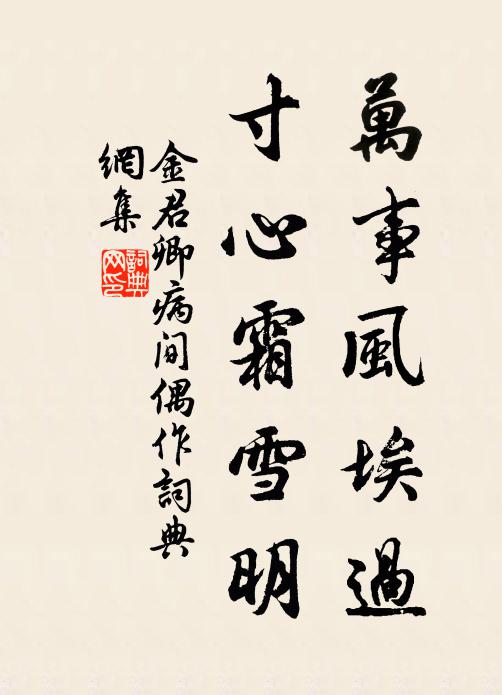 萬事風埃過
寸心霜雪明
金君卿病间偶作詞典
網集
詞典
网印